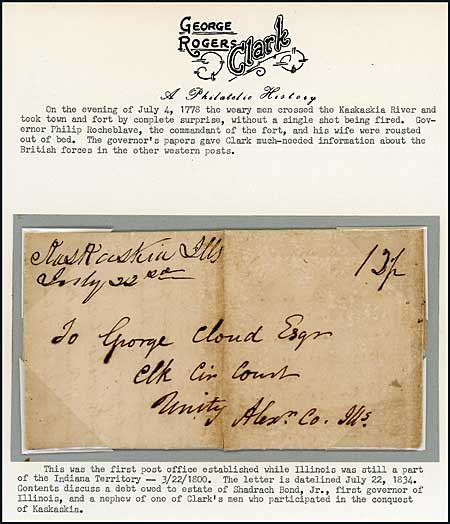 GEORGE
ROGERS
Clark
A Philatelic History
On the evening of July 4, 1778 the weary men crossed the Kaskaskia River and
took town and fort by complete surprise, without a single shot being fired. Gov-
ernor Philip Rocheblave, the commandant of the fort, and his wife were rousted
out of bed. The governor's papers gave Clark much-needed information about the
British forces in the other western posts.
Kaskaskia Ills
July 22nd
To George Cloud Esqr
Clk Cir Court
Unity Alexr Co. Ills
This was the first post office established while Illinois was still a part
of the Indiana Territory — 3/22/1800. The letter is datelined July 22, 1834.
Contents discuss a debt owed to estate of Shadrach Bond, Jr., first governor of
Illinois, and a nephew of one of Clark's men who participated in the conquest
of Kaskaskia.